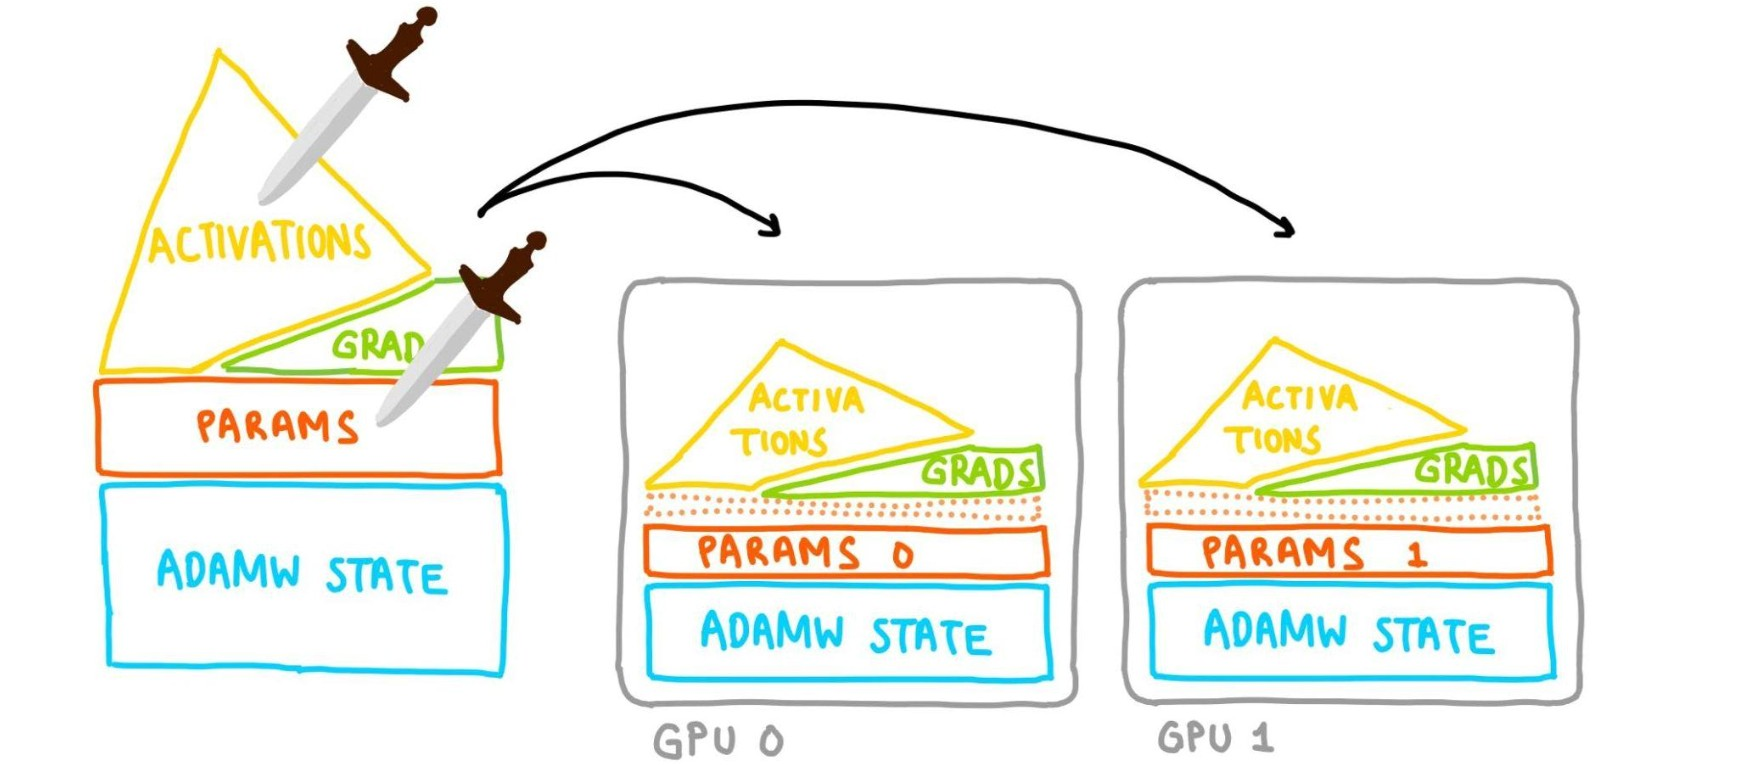 ACTIVATIONS
GRAD
PARAMS
ADAMW STATE
ACTIVA
TIONS
GRADS
PARAMS 0
ADAMW STATE
GPU 0
ACTIVA
TIONS
GRADS
PARAMS 1
ADAMW STATE
GPU 1